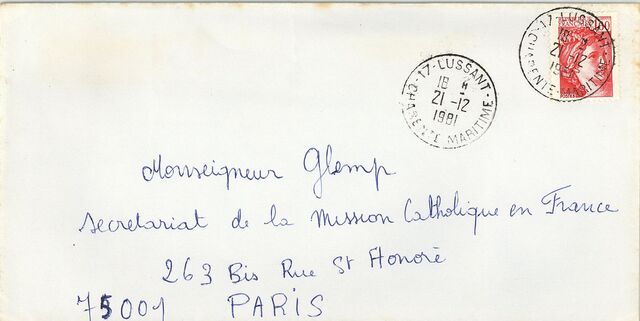 17-LUSSANT
18 H
21-12
1981
CHARENTE-MARITIME
17-LUSSANT
18 H
21-12
CHARENTE-MARITIME
Monseigneur Glemp
secretariat de la Mission Catholique en France
263 Bis Rue St Honoré
75001 PARIS